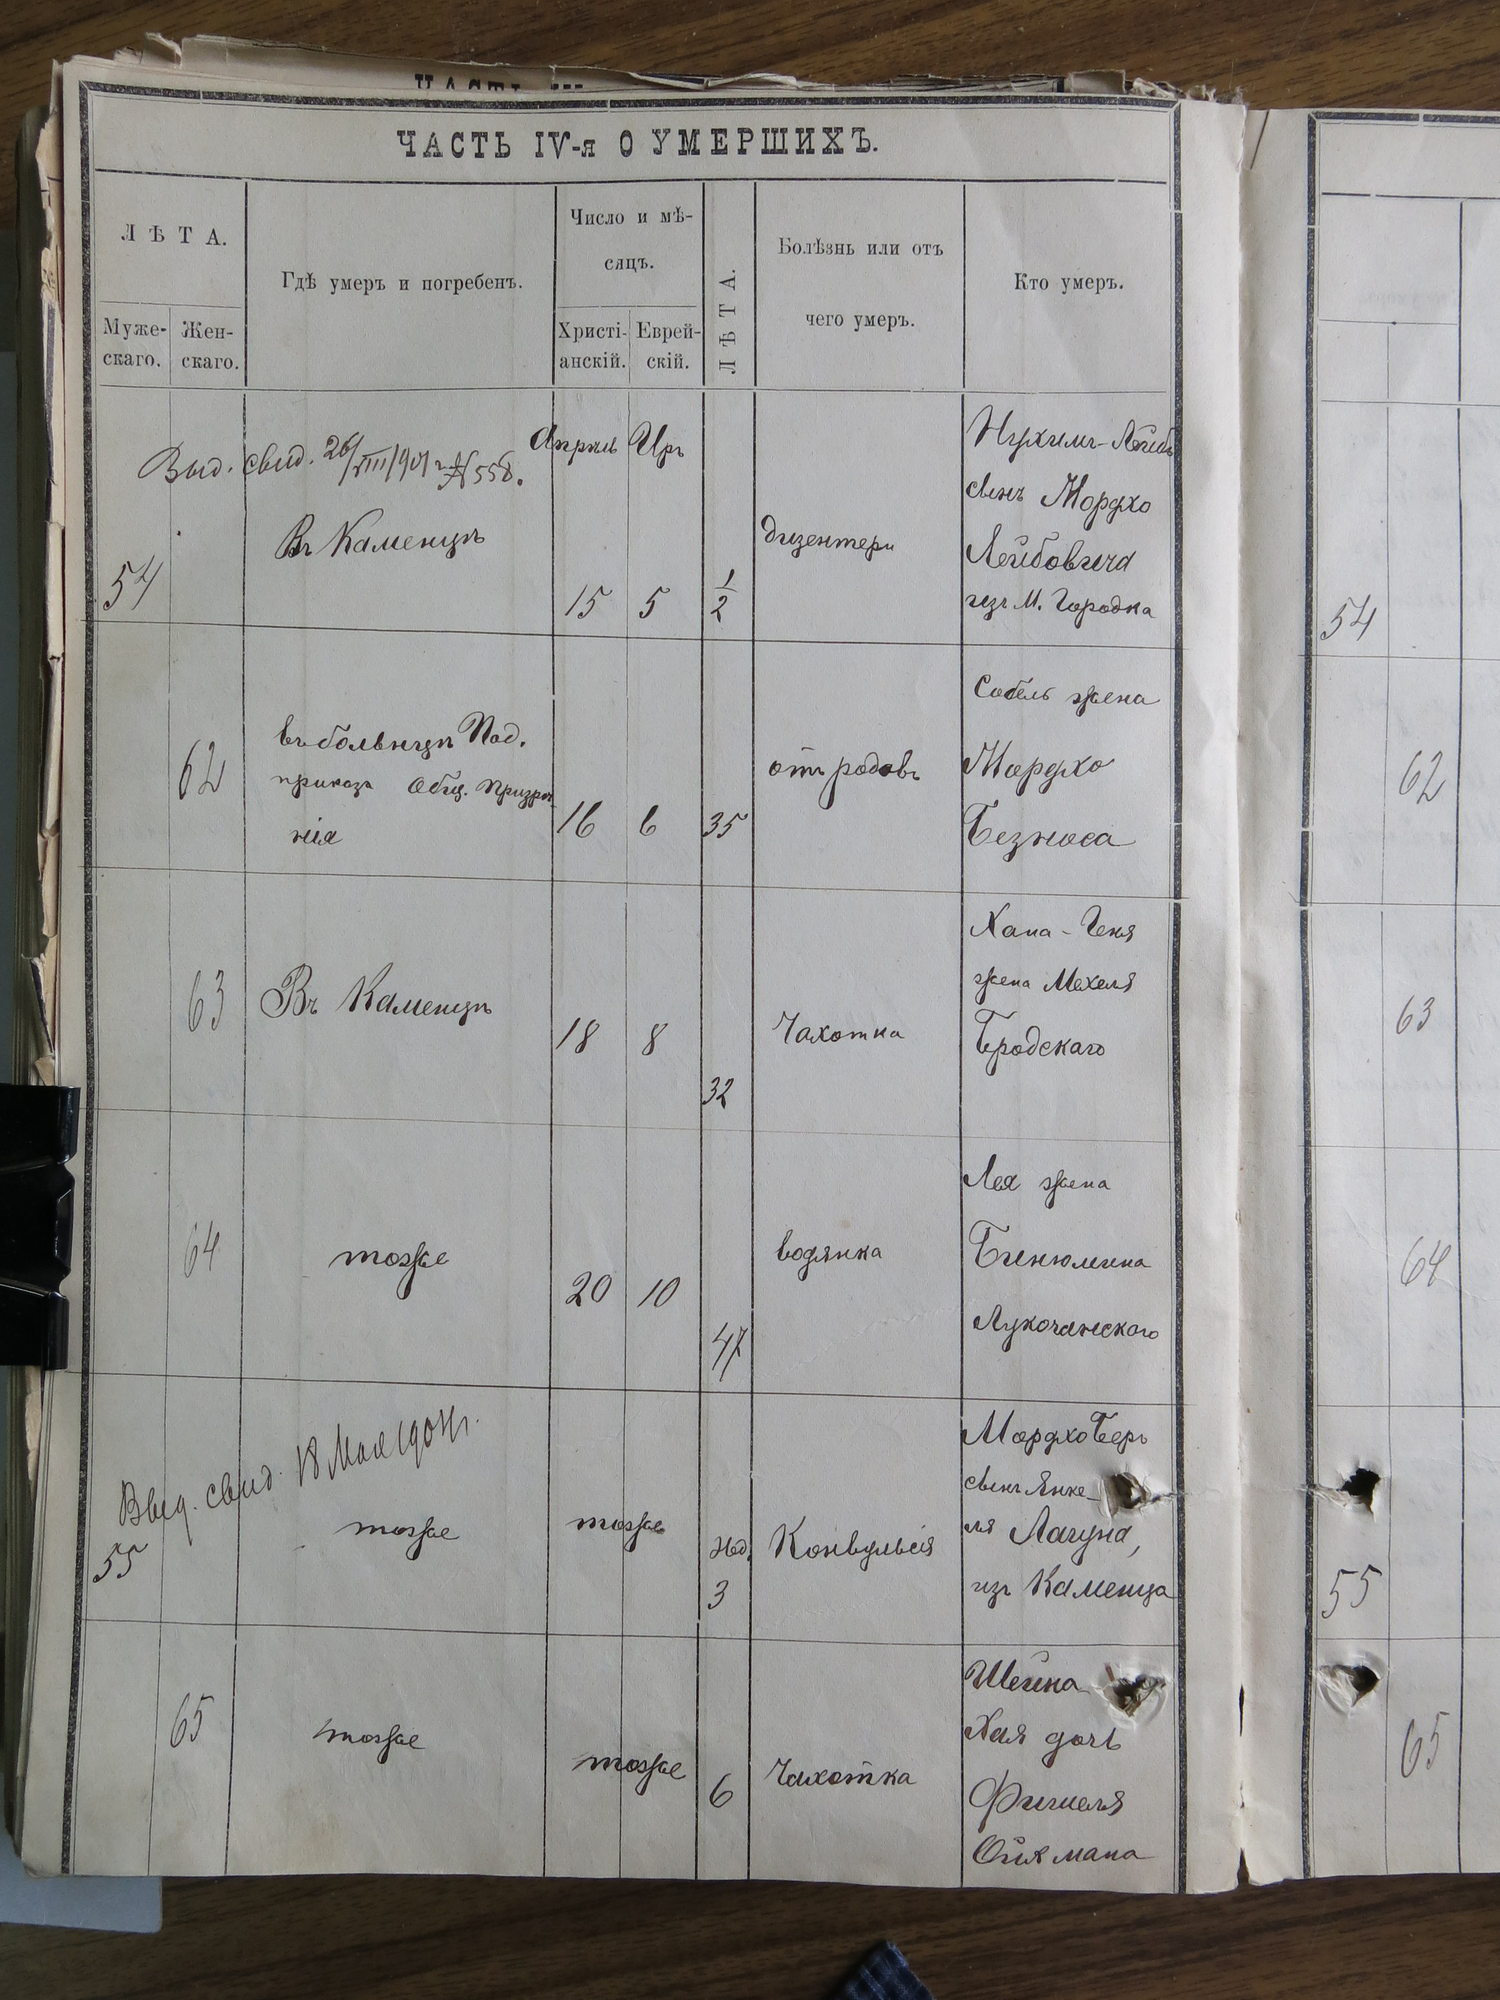 ЧАСТЬ IV-я О УМЕРШИХЪ.
ЛѢТА.
Муже-
скаго.
Жен-
скаго.
Гдѣ умеръ и погребенъ.
Число и мѣ-
сяцъ.
Христі-
анскій.
Еврей-
скій.
ЛѢТА.
Болѣзнь или отъ
чего умеръ.
Кто умеръ.
Выд. свид. 26/VIII/901 г. № 558.
54
Въ Каменцѣ
Апрѣль
15
Иръ
5
1/2
дизентери
Нухимъ-Лейбъ
сынъ Мордхо
Лейбовича
изъ М. Городка
54
62
въ больницѣ Под.
приказа Общ. Призрѣ-
нія
16
6
35
отъ родовъ
Собель жена
Мордхо
Безноса
62
63
Въ Каменцѣ
18
8
32
Чахотка
Хана-Геня
жена Мехеля
Бродскаго
63
64
тоже
20
10
47
водянка
Лея жена
Бенюмина
Лукочанскаго
64
Выд. свид. 18 Мая
55
тоже
тоже
Нед.
3
Конвульсія
Мордхо Беръ
сынъ Янке-
ля
изъ Каменца
55
65
тоже
тоже
6
Чахотка
Шейна
Хая дочь
Фишеля
65